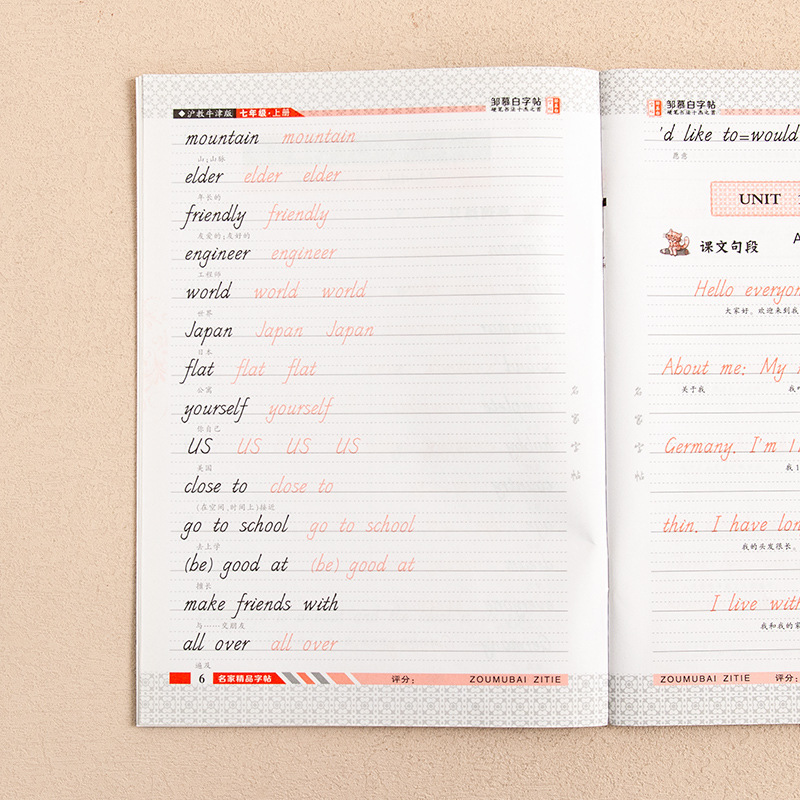 ◆沪教牛津版 七年级·上册 邹慕白字帖
硬笔书法十杰之首
mountain mountain
山;山脉
elder elder elder
年长的
friendly friendly
友爱的;友好的
engineer engineer
工程师
world world world
世界
Japan Japan Japan
日本
flat flat flat
公寓
yourself yourself
你自己
US US US US
美国
close to close to
(在空间、时间上)接近
go to school go to school
去上学
(be) good at (be) good at
擅长
make friends with
与……交朋友
all over all over
遍及
名家字帖
6 名家精品字帖 评分: ZOUMUBAI ZITIE
邹慕白字帖
硬笔书法十杰之首
'd like to=would
愿意
UNIT
课文句段
Hello everyon
大家好。欢迎来到我
About me: My
关于我
Germany. I'm 1
thin. I have lon
我的头发很长。
I live with
我和我的家
名家字帖
ZOUMUBAI ZITIE 评分: